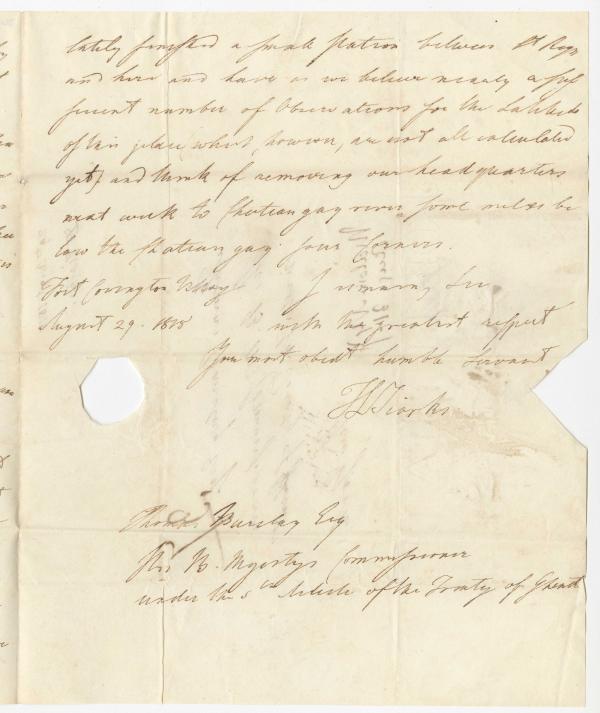 lately finished a small station between St Regis
and here and have as we believe nearly a suf
ficient number of Observations for the Latitude
of this place, which, however, are not all calculated
yet, and think of removing our head quarters
next week to Chateaugay river, some miles be
low the Chateaugay four Corners.
Fort Covington Village I remain, Sir
August 29. 1818 with the greatest respect
Your most obedt humble Servant
Thomas Barclay Esq
His B. Majestys Commissioner
under the 5th Article of the Treaty of Ghent